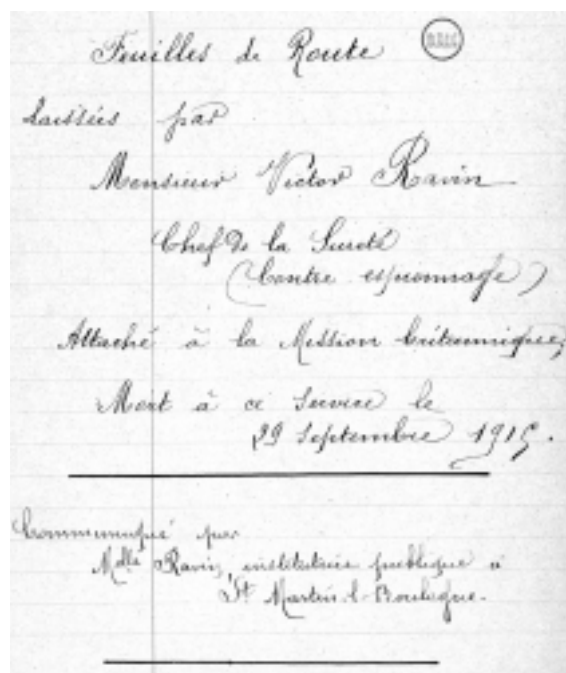 Feuilles de Route
laissées par
Monsieur Victor Ravin
Chef de la Sureté
(Contre espionnage)
Attaché à la Mission britannique,
Mort à ce Service le
29 Septembre 1915.
Communiqué par
Melle Ravin, institutrice publique à
St Martin-l-Boulogne.